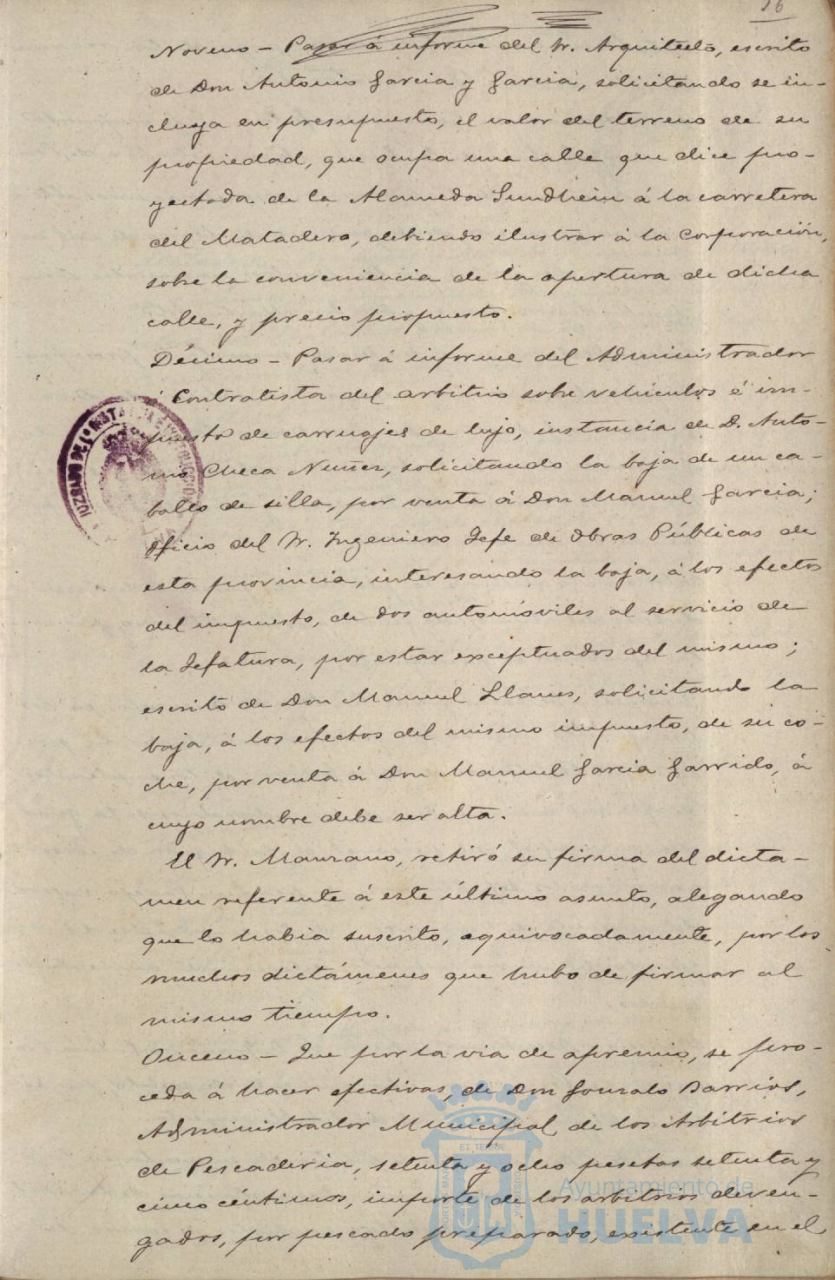 16
Noveno - Pasar á informe del Sr. Arquitecto, escrito
de Don Antonio Garcia y Garcia, solicitando se in-
cluya en presupuesto, el valor del terreno de su
propiedad, que ocupa una calle que dice pro-
yectada de la Alameda Sundhein á la carretera
del Matadero, debiendo ilustrar á la Corporación,
sobre la conveniencia de la apertura de dicha
calle, y precio propuesto.
Décimo - Pasar á informe del Administrador
Contratista del arbitrio sobre vehículos é im-
puesto de carruajes de lujo, instancia de D. Anto-
nio Checa Nuñez, solicitando la baja de un ca-
ballo de silla, por venta á Don Manuel Garcia;
oficio del Sr. Ingeniero Jefe de Obras Públicas de
esta provincia, interesando la baja, á los efectos
del impuesto, de dos automóviles al servicio de
la Jefatura, por estar exceptuados del mismo;
escrito de Don Manuel Llanes, solicitando la
baja, á los efectos del mismo impuesto, de su co-
che, por venta á Don Manuel Garcia Garrido, á
cuyo nombre debe ser alta.
El Sr. Manzano, retiró su firma del dicta-
men referente á este último asunto, alegando
que lo habia suscrito, equivocadamente, por los
muchos dictámenes que hubo de firmar al
mismo tiempo.
Onceno - Que por la via de apremio, se pro-
ceda á hacer efectivas, de Don Gonzalo Barrios,
Administrador Municipal de los Arbitrios
de Pescaderia, setenta y ocho pesetas setenta y
cinco céntimos, importe de los arbitrios deven-
gados, por pescado preparado, existente en el
JUZGADO DE 1ª INSTANCIA E INSTRUCCION
Ayuntamiento de
HUELVA